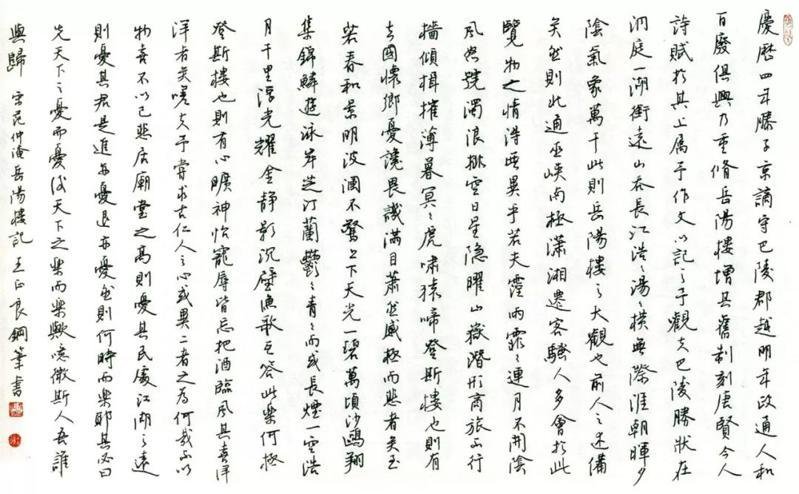 慶曆四年滕子京謫守巴陵郡越明年政通人和
百廢俱興乃重修岳陽樓增其舊制刻唐賢今人
詩賦於其上屬予作文以記之予觀夫巴陵勝狀在
洞庭一湖銜遠山吞長江浩〻湯〻橫無際涯朝暉夕
陰氣象萬千此則岳陽樓之大觀也前人之述備
矣然則北通巫峽南極瀟湘遷客騷人多會於此
覽物之情得無異乎若夫霪雨霏〻連月不開陰
風怒號濁浪排空日星隱曜山嶽潛形商旅不行
檣傾楫摧薄暮冥〻虎嘯猿啼登斯樓也則有
去國懷鄉憂讒畏譏滿目蕭然感極而悲者矣至
若春和景明波瀾不驚上下天光一碧萬頃沙鷗翔
集錦鱗游泳岸芷汀蘭鬱〻青〻而或長煙一空浩
月千里浮光耀金靜影沉璧漁歌互答此樂何極
登斯樓也則有心曠神怡寵辱皆忘把酒臨風其喜洋
洋者矣嗟夫予嘗求古仁人之心或異二者之為何哉不以
物喜不以己悲居廟堂之高則憂其民處江湖之遠
則憂其君是進亦憂退亦憂然則何時而樂耶其必曰
先天下之憂而憂後天下之樂而樂歟噫微斯人吾誰
與歸 宋范仲淹岳陽樓記 王正良鋼筆書